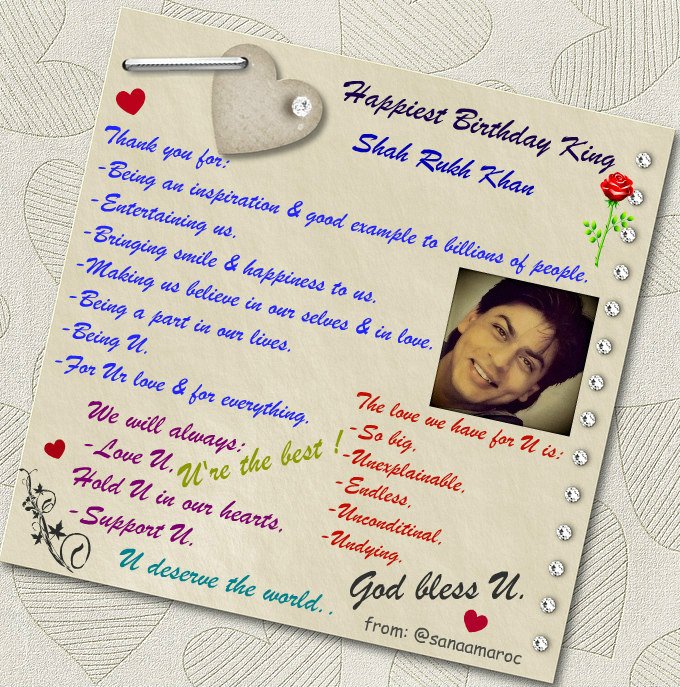 Happiest Birthday King
Shah Rukh Khan
Thank you for:
-Being an inspiration & good example to billions of people.
-Entertaining us.
-Bringing smile & happiness to us.
-Making us believe in our selves & in love.
-Being a part in our lives.
-Being U.
-For Ur love & for everything.
We will always:
-Love U.
Hold U in our hearts.
-Support U.
U`re the best !
The love we have for U is:
-So big.
-Unexplainable.
-Endless.
-Unconditinal.
-Undying.
U deserve the world..
God bless U.
from: @sanaamaroc